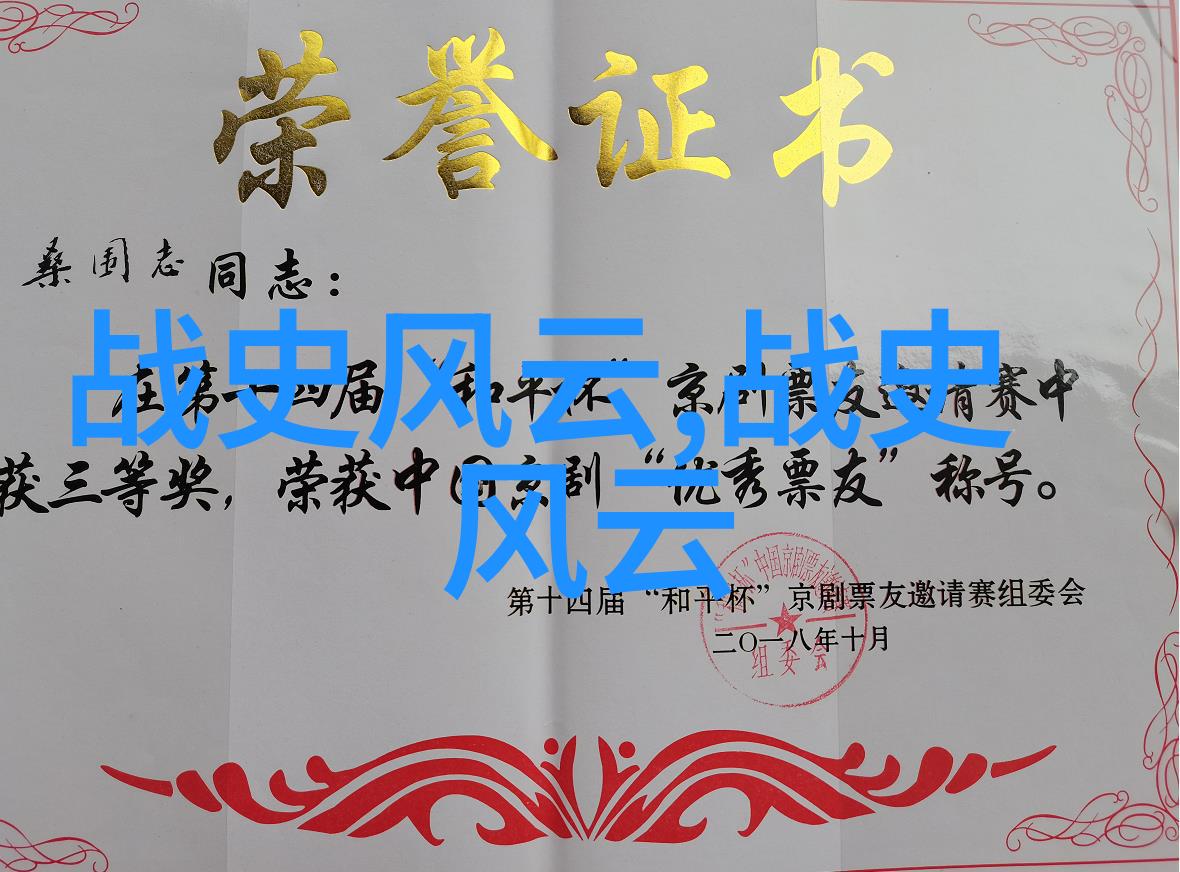 荣誉证书
桑国志同志：
在第十四届“和平杯”京剧票友邀请赛中
获三等奖，荣获中国京剧“优秀票友”称号。
战史风云,战史
风云
第十四届“和平杯”京剧票友邀请赛组委会
二〇一八年十月
组委会